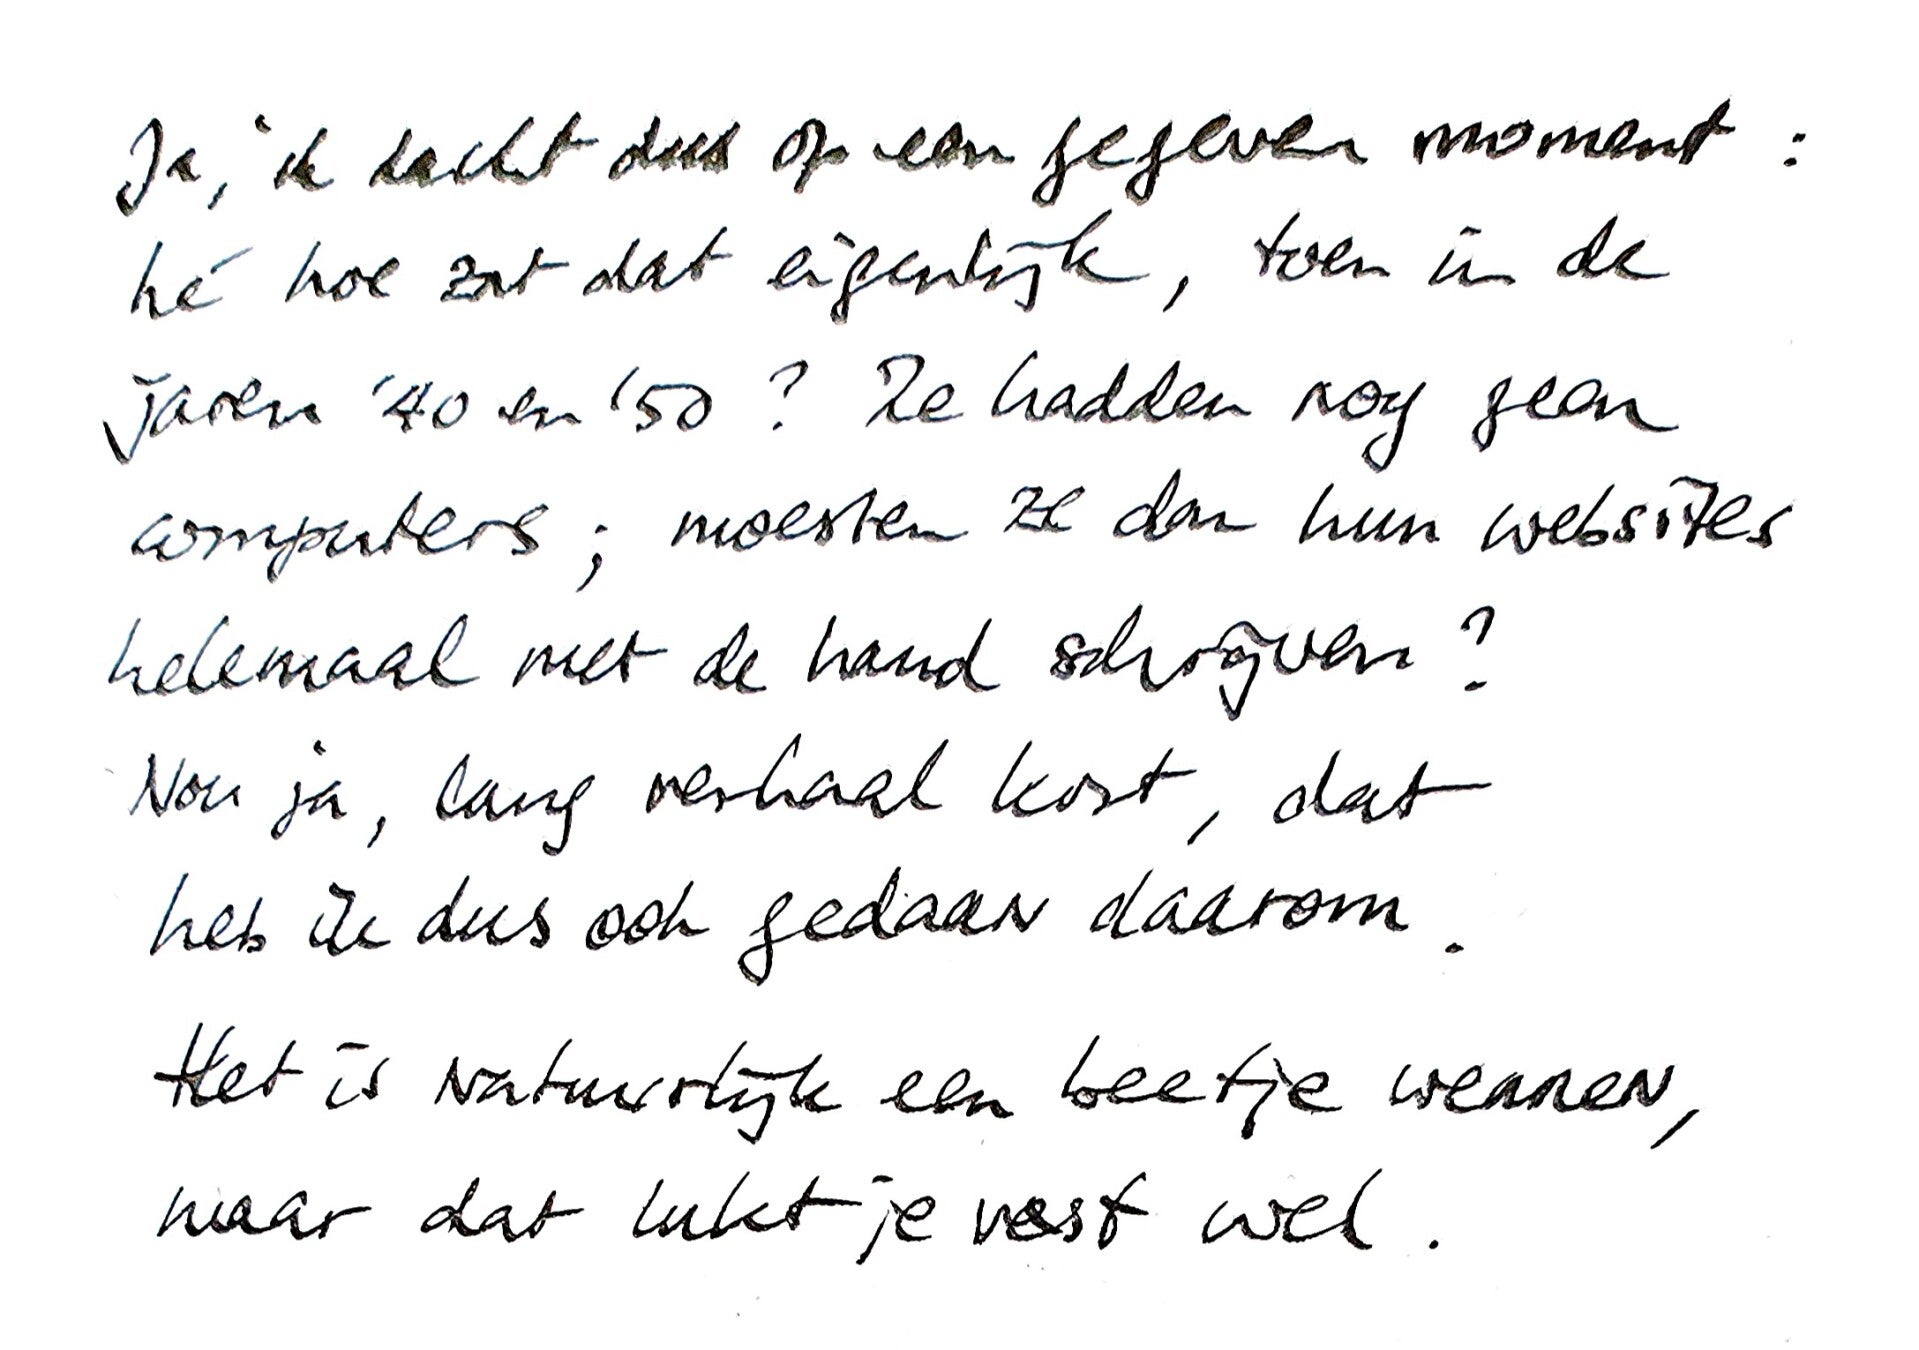 Ja, ik dacht dus op een gegeven moment :
hé hoe zat dat eigenlijk, toen in de
jaren '40 en '50 ? Ze hadden nog geen
computers ; moesten ze dan hun websites
helemaal met de hand schrijven ?
Nou ja, lang verhaal kort, dat
heb ik dus ook gedaan daarom.
Het is natuurlijk een beetje wennen,
maar dat lukt je vast wel.